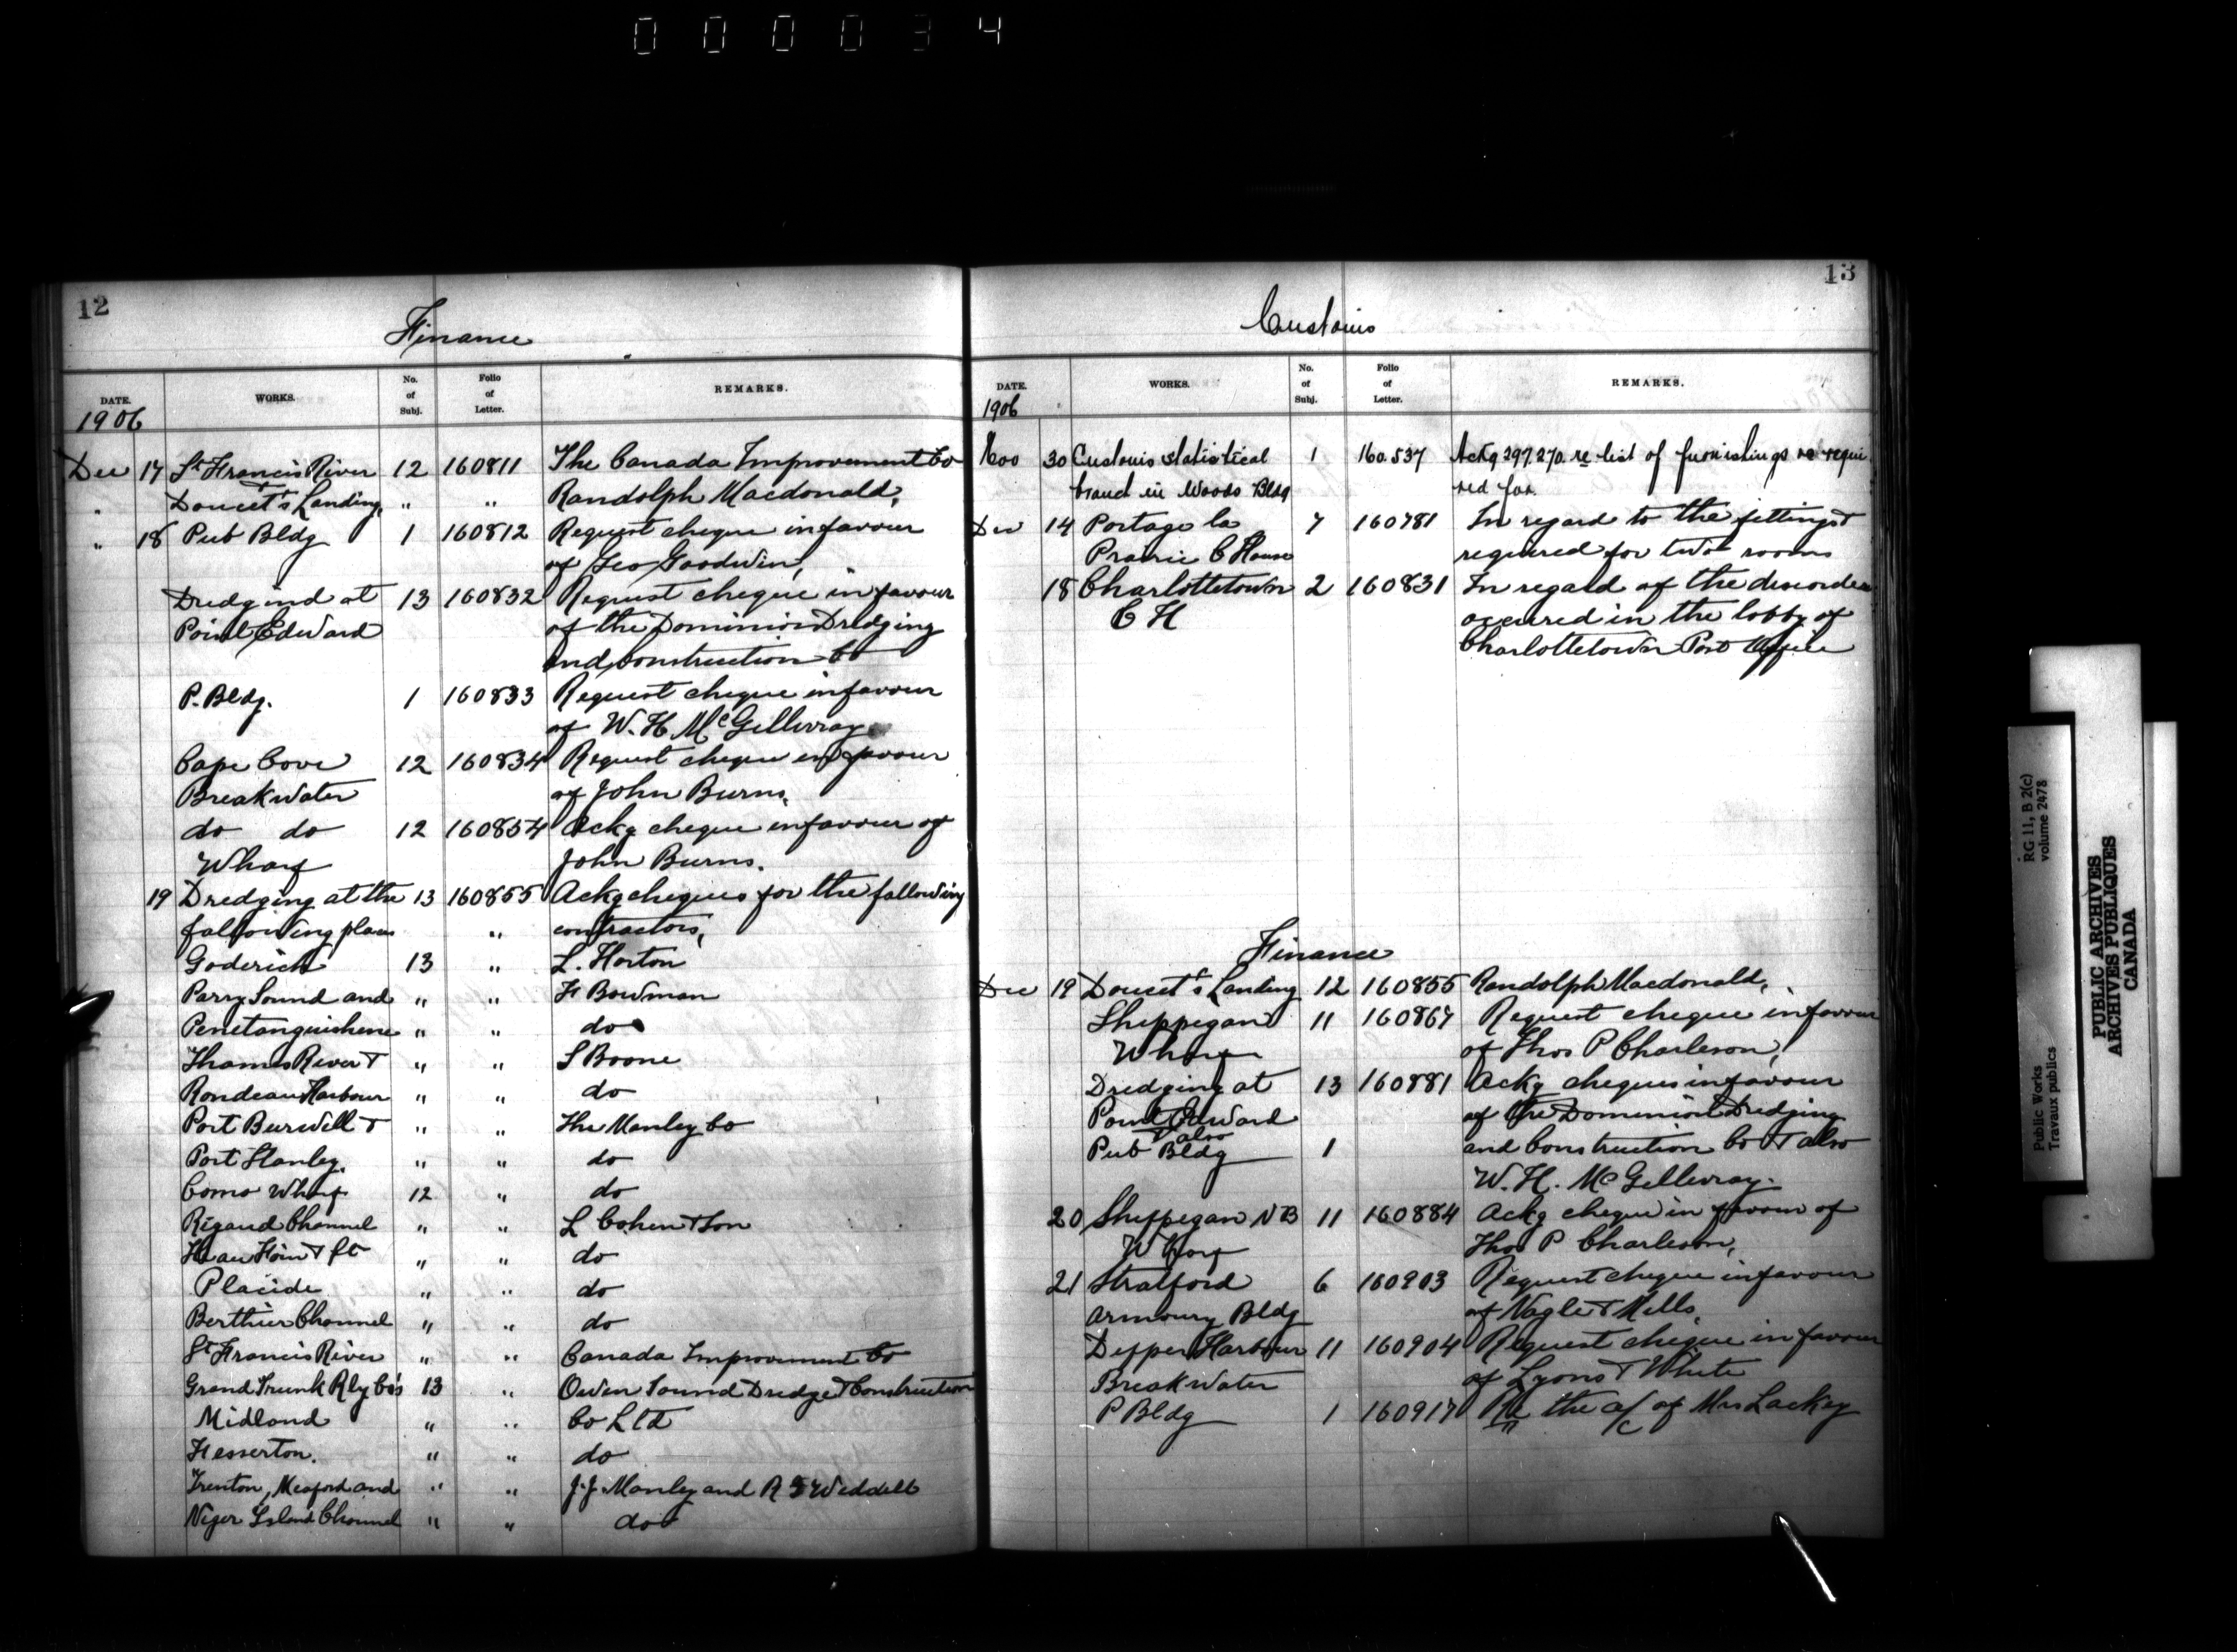 000034
12
Finance
DATE. WORKS. No. of Subj. Folio of Letter. REMARKS.
1906
Dec 17 St Francis River 12 160811 The Canada Improvement Co
" Doucet's Landing, " " Randolph Macdonald,
" 18 Pub Bldg 1 160812 Request cheque in favour
of Geo Goodwin,
Dredgind at 13 160832 Request cheque in favour
Point Edward of the Dominion Dredging
and construction Co
P. Bldg. 1 160833 Request cheque in favour
of W. H. McGillivray
Cape Cove 12 160834 Request cheque in favour
Breakwater of John Burns,
do do 12 160854 Ackg cheque in favour of
Wharf John Burns.
19 Dredging at the 13 160855 Ackg cheques for the following
following places " contractors,
Goderich 13 " L. Horton
Parry Sound and " " F Bowman
Penetanguishene " " do
Thames River & " " S Boone
Rondeau Harbour " " do
Port Burwell & " " The Manley Co
Port Stanley, " " do
Como Wharf 12 " do
Rigaud Channel " " L Cohen & Son
" " do
Placide " " do
Berthier Channel " " do
St Francis River " " Canada Improvement Co
Grand Trunk Rly Co's 13 " Owen Sound Dredge & Construction
Midland " " Co Ltd
Fesserton. " " do
Trenton, Meaford and " " J. J. Manley and R Weddell
Niger Island Channel " " do
13
Customs
DATE. WORKS. No. of Subj. Folio of Letter. REMARKS.
1906
Nov 30 Customs statistical 1 160.537 Ackg 297.270. re list of furnishings re requi-
branch in Woods Bldg red for.
Dec 14 Portage la 7 160781 In regard to the fittings &
Prairie C House required for two rooms
18 Charlottetown 2 160831 In regard of the disorder
C H occured in the lobby of
Charlottetown Post Office
Finance
Dec 19 Doucet's Landing 12 160855 Randolph Macdonald,
Shippegan 11 160867 Request cheque in favour
Wharf of Thos P Charleson,
Dredging at 13 160881 Ackg cheques in favour
Point Edward of the Dominion Dredging
& also
Pub Bldg 1 and Construction Co & also
W. H. McGillivray.
20 Shippegan NB 11 160884 Ackg cheque in favour of
Wharf Thos P Charleson,
21 Stratford 6 160903 Request cheque in favour
Armoury Bldg of Nagle & Mills,
Dipper Harbour 11 160904 Request cheque in favour
Breakwater of Lyons & White
P Bldg 1 160917 Re the a/c of Mrs Lackey
Public Works
Travaux publics
RG 11, B 2(c)
volume 2478
PUBLIC ARCHIVES
ARCHIVES PUBLIQUES
CANADA